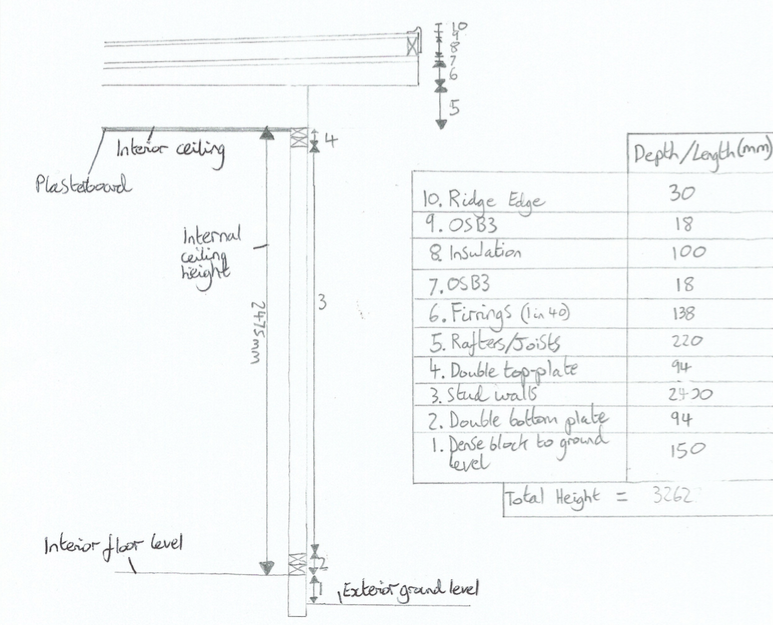 10
9
8
7
6
5
4
Interior ceiling
Plasterboard
Internal
ceiling
height
2475mm
3
Interior floor level
2
1
Exterior ground level
Depth/Length(mm)
10. Ridge Edge 30
9. OSB3 18
8. Insulation 100
7. OSB3 18
6. Firrings (1 in 40) 138
5. Rafters/Joists 220
4. Double top-plate 94
3. Stud walls 2400
2. Double bottom plate 94
1. Dense block to ground
level 150
Total Height = 3262